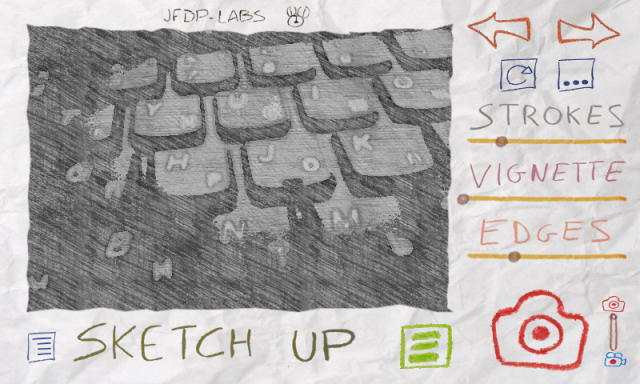 JFDP-LABS
STROKES
VIGNETTE
EDGES
Y U I
H J K
B N M
SKETCH UP